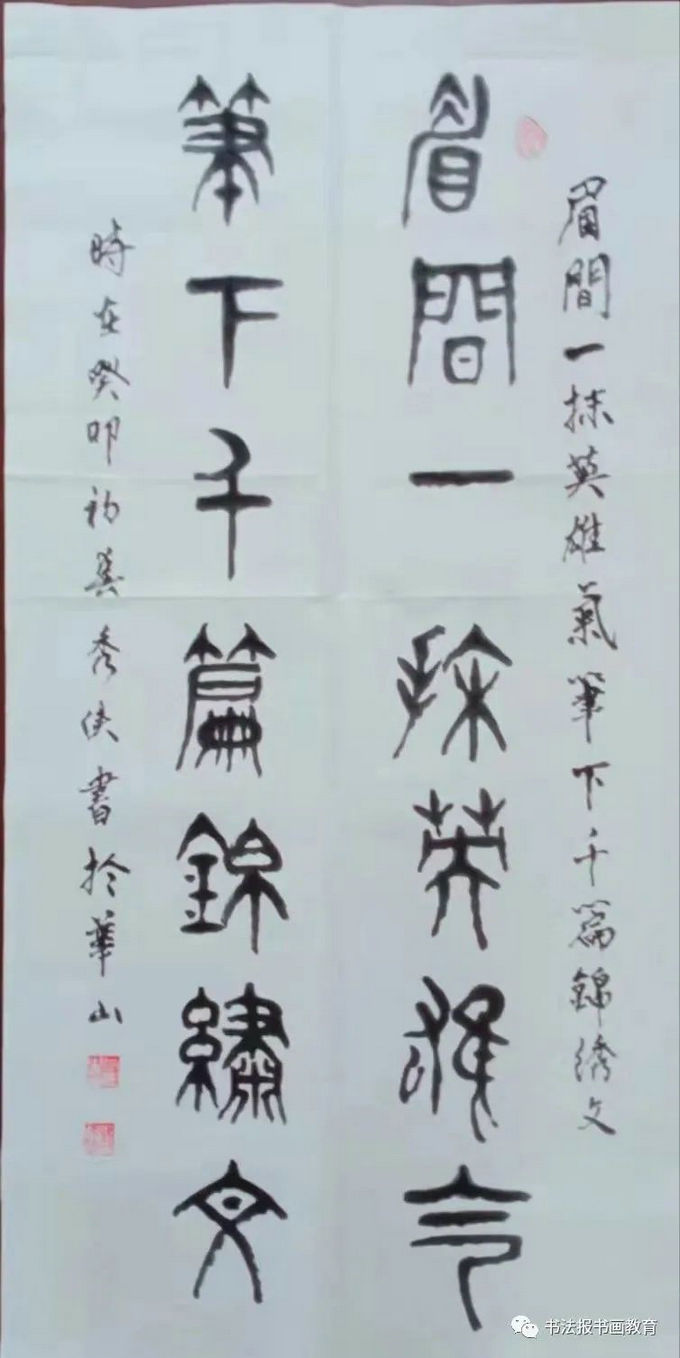 眉間一抹英雄氣筆下千篇錦绣文
眉間一抹英雄气
筆下千篇錦繡文
時在癸卯初異秀俠書於華山
书法报书画教育